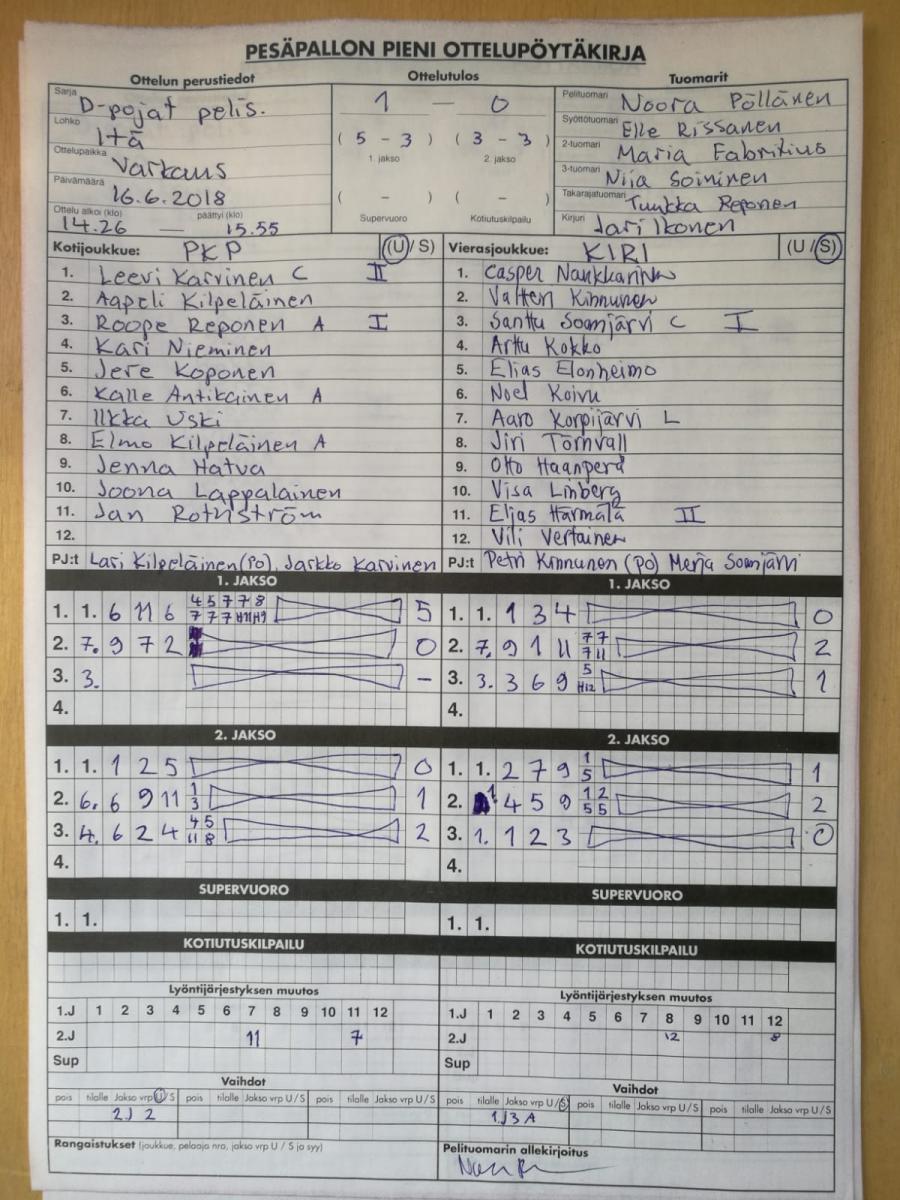 PESÄPALLON PIENI OTTELUPÖYTÄKIRJA
Ottelun perustiedot
Sarja D-pojat pelis.
Lohko Itä
Ottelupaikka Varkaus
Päivämäärä 16.6.2018
Ottelu alkoi (klo) päättyi (klo)
14.26 — 15.55
Ottelutulos
1 — 0
( 5 - 3 ) ( 3 - 3 )
1. jakso 2. jakso
( - ) ( - )
Supervuoro Kotiutuskilpailu
Tuomarit
Pelituomari Noora Pöllänen
Syöttötuomari Elle Rissanen
2-tuomari Maria Fabritius
3-tuomari Niia Soininen
Takarajatuomari Tuukka Reponen
Kirjuri Jari Ikonen
Kotijoukkue: PKP (U / S)
1. Leevi Karvinen C II
2. Aapeli Kilpeläinen
3. Roope Reponen A I
4. Kari Nieminen
5. Jere Koponen
6. Kalle Antikainen A
7. Ilkka Uski
8. Elmo Kilpeläinen A
9. Jenna Hatva
10. Joona Lappalainen
11. Jan Rothström
12.
PJ:t Lari Kilpeläinen (PO), Jarkko Karvinen
Vierasjoukkue: KIRI (U / S)
1. Casper Nankkarinen
2. Valtteri Kinnunen
3. Santtu Soinijärvi C I
4. Arttu Kokko
5. Elias Elonheimo
6. Noel Koivu
7. Aaro Korpijärvi L
8. Jiri Törnvall
9. Otto Haanperä
10. Visa Linberg
11. Elias Härmälä II
12. Vili Vertainen
PJ:t Petri Kinnunen (PO) Merja Soinijärvi
1. JAKSO
1. 1. 6 11 6 4 5 7 7 8 5
7 7 7 H11 H9
2. 7. 9 7 2 0
3. 3. -
4.
2. JAKSO
1. 1. 1 2 5 0
2. 6. 6 9 11 1 1
3
3. 4. 6 2 4 4 5 2
11 8
4.
SUPERVUORO
1. 1.
KOTIUTUSKILPAILU
Lyöntijärjestyksen muutos
1.J 1 2 3 4 5 6 7 8 9 10 11 12
2.J 11 7
Sup
Vaihdot
pois tilalle Jakso vrp U/S pois tilalle Jakso vrp U/S pois tilalle Jakso vrp U/S
2J 2
Rangaistukset (joukkue, pelaaja nro, jakso vrp U / S ja syy)
1. JAKSO
1. 1. 1 3 4 0
2. 7. 9 1 11 7 7 2
7 11
3. 3. 3 6 9 5 1
H12
4.
2. JAKSO
1. 1. 2 7 9 1 1
5
2. 1. 4 5 9 1 2 2
5 5
3. 1. 1 2 3 0
4.
SUPERVUORO
1. 1.
KOTIUTUSKILPAILU
Lyöntijärjestyksen muutos
1.J 1 2 3 4 5 6 7 8 9 10 11 12
2.J 12 8
Sup
Vaihdot
pois tilalle Jakso vrp U/S pois tilalle Jakso vrp U/S pois tilalle Jakso vrp U/S
1J3A
Pelituomarin allekirjoitus